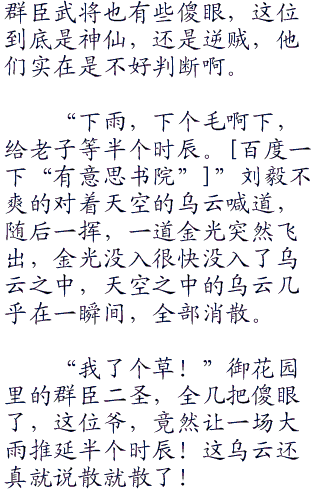 群臣武将也有些傻眼，这位
到底是神仙，还是逆贼，他
们实在是不好判断啊。
“下雨，下个毛啊下，
给老子等半个时辰。[百度一
下“有意思书院”]”刘毅不
爽的对着天空的乌云喊道，
随后一挥，一道金光突然飞
出，金光没入很快没入了乌
云之中，天空之中的乌云几
乎在一瞬间，全部消散。
“我了个草！”御花园
里的群臣二圣，全几把傻眼
了，这位爷，竟然让一场大
雨推延半个时辰！这乌云还
真就说散就散了！